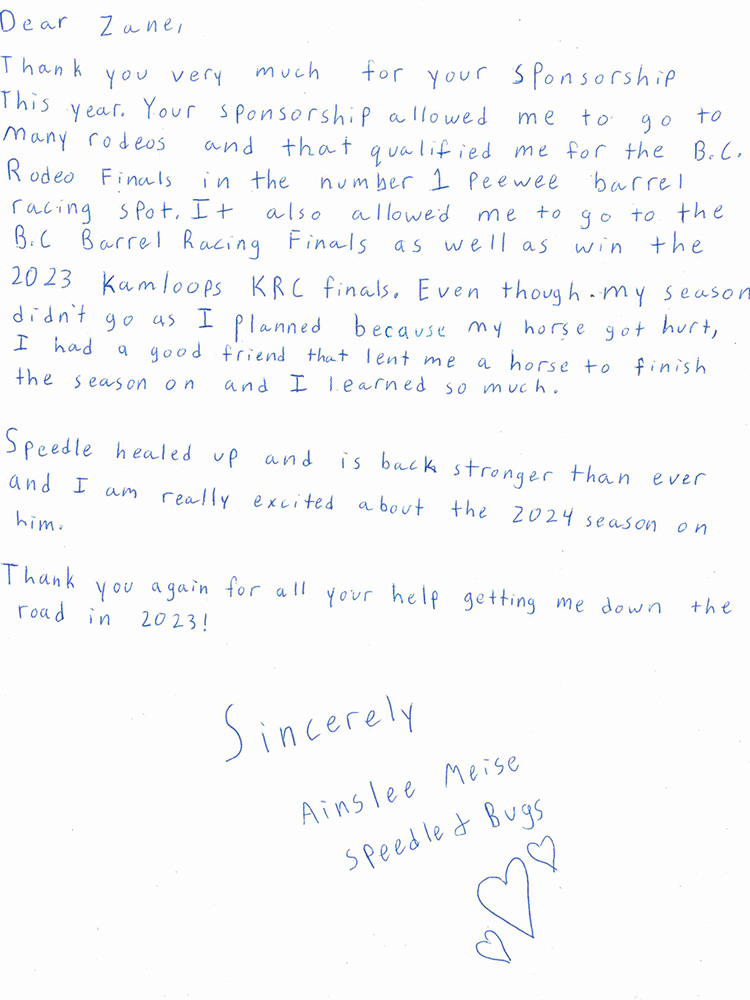 Dear Zane,
Thank you very much for your sponsorship
This year. Your sponsorship allowed me to go to
many rodeos and that qualified me for the B.C.
Rodeo Finals in the number 1 Peewee barrel
racing spot. It also allowed me to go to the
B.C Barrel Racing Finals as well as win the
2023 Kamloops KRC finals. Even though my season
didn't go as I planned because my horse got hurt,
I had a good friend that lent me a horse to finish
the season on and I learned so much.
Speedle healed up and is back stronger than ever
and I am really excited about the 2024 season on
him.
Thank you again for all your help getting me down the
road in 2023!
Sincerely
Ainslee Meise
Speedle & Bugs